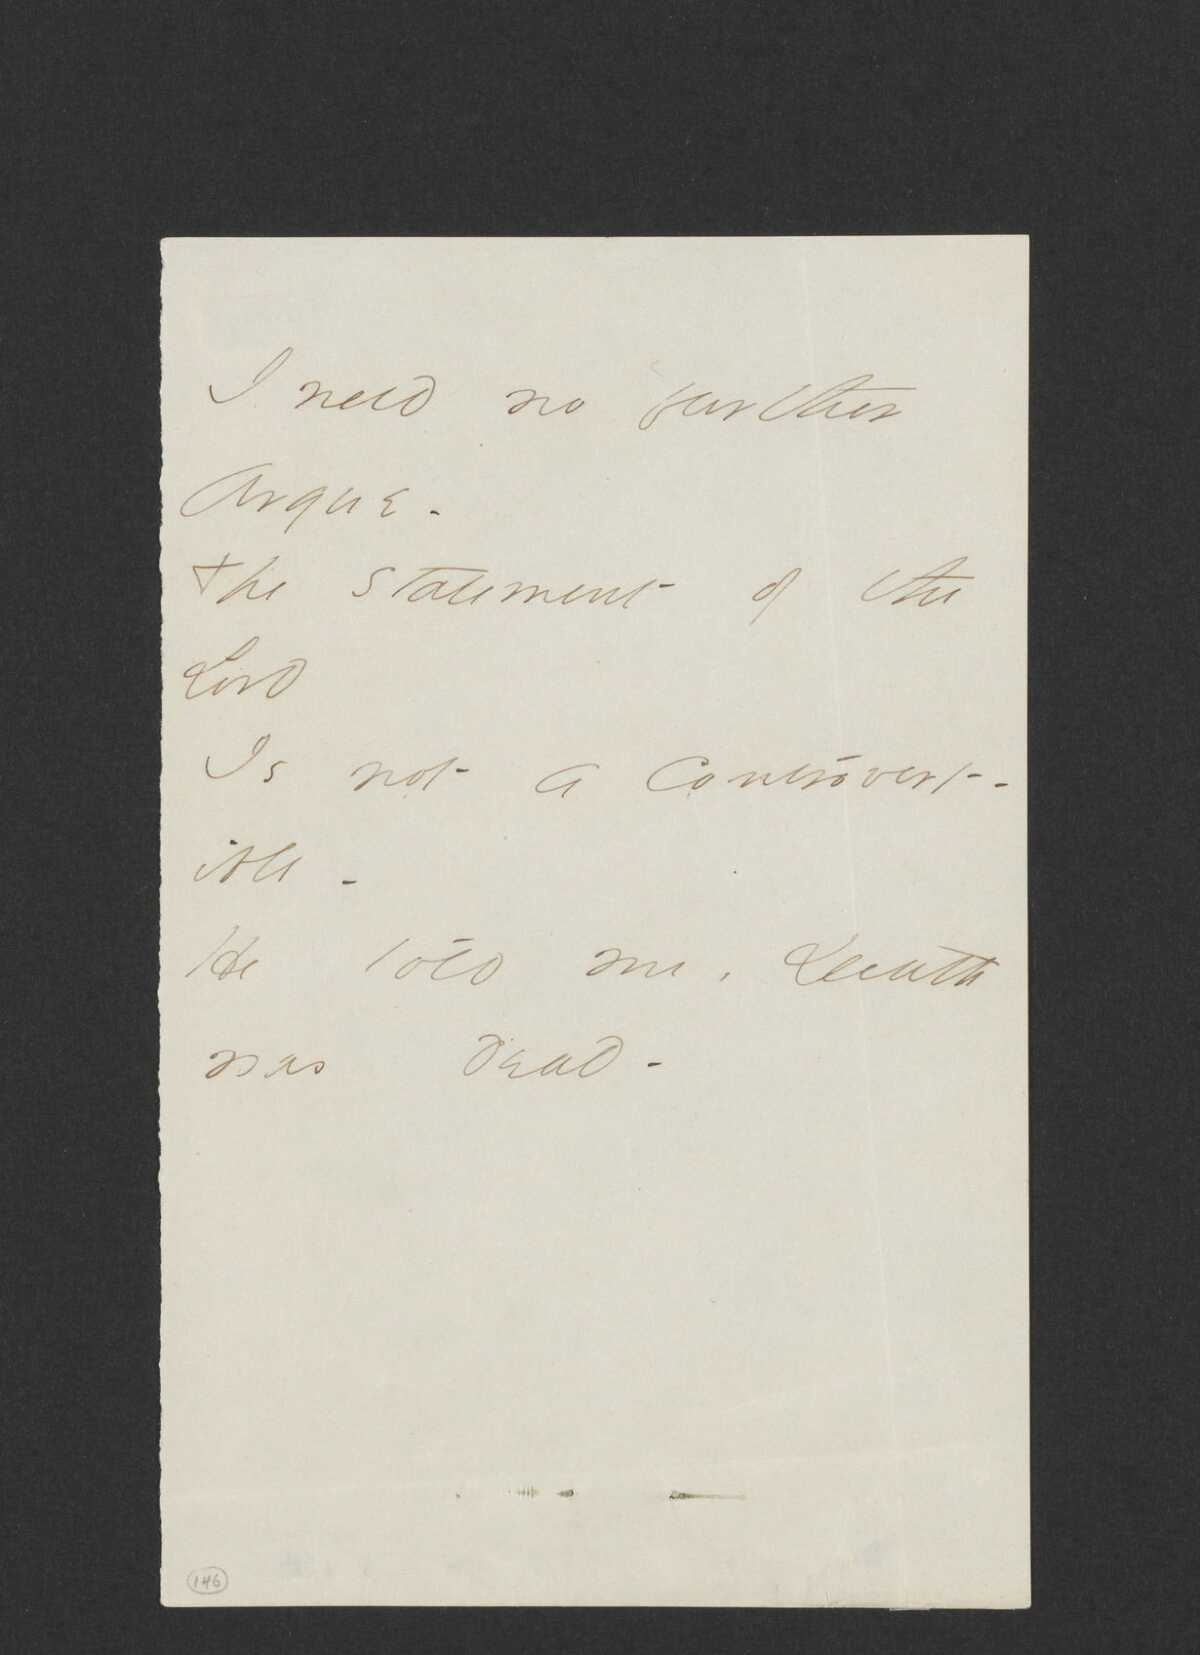 I need no further
Argue -
the statement of the
Lord
Is not a Controvert -
ible -
He told me, Death
was dead -
146